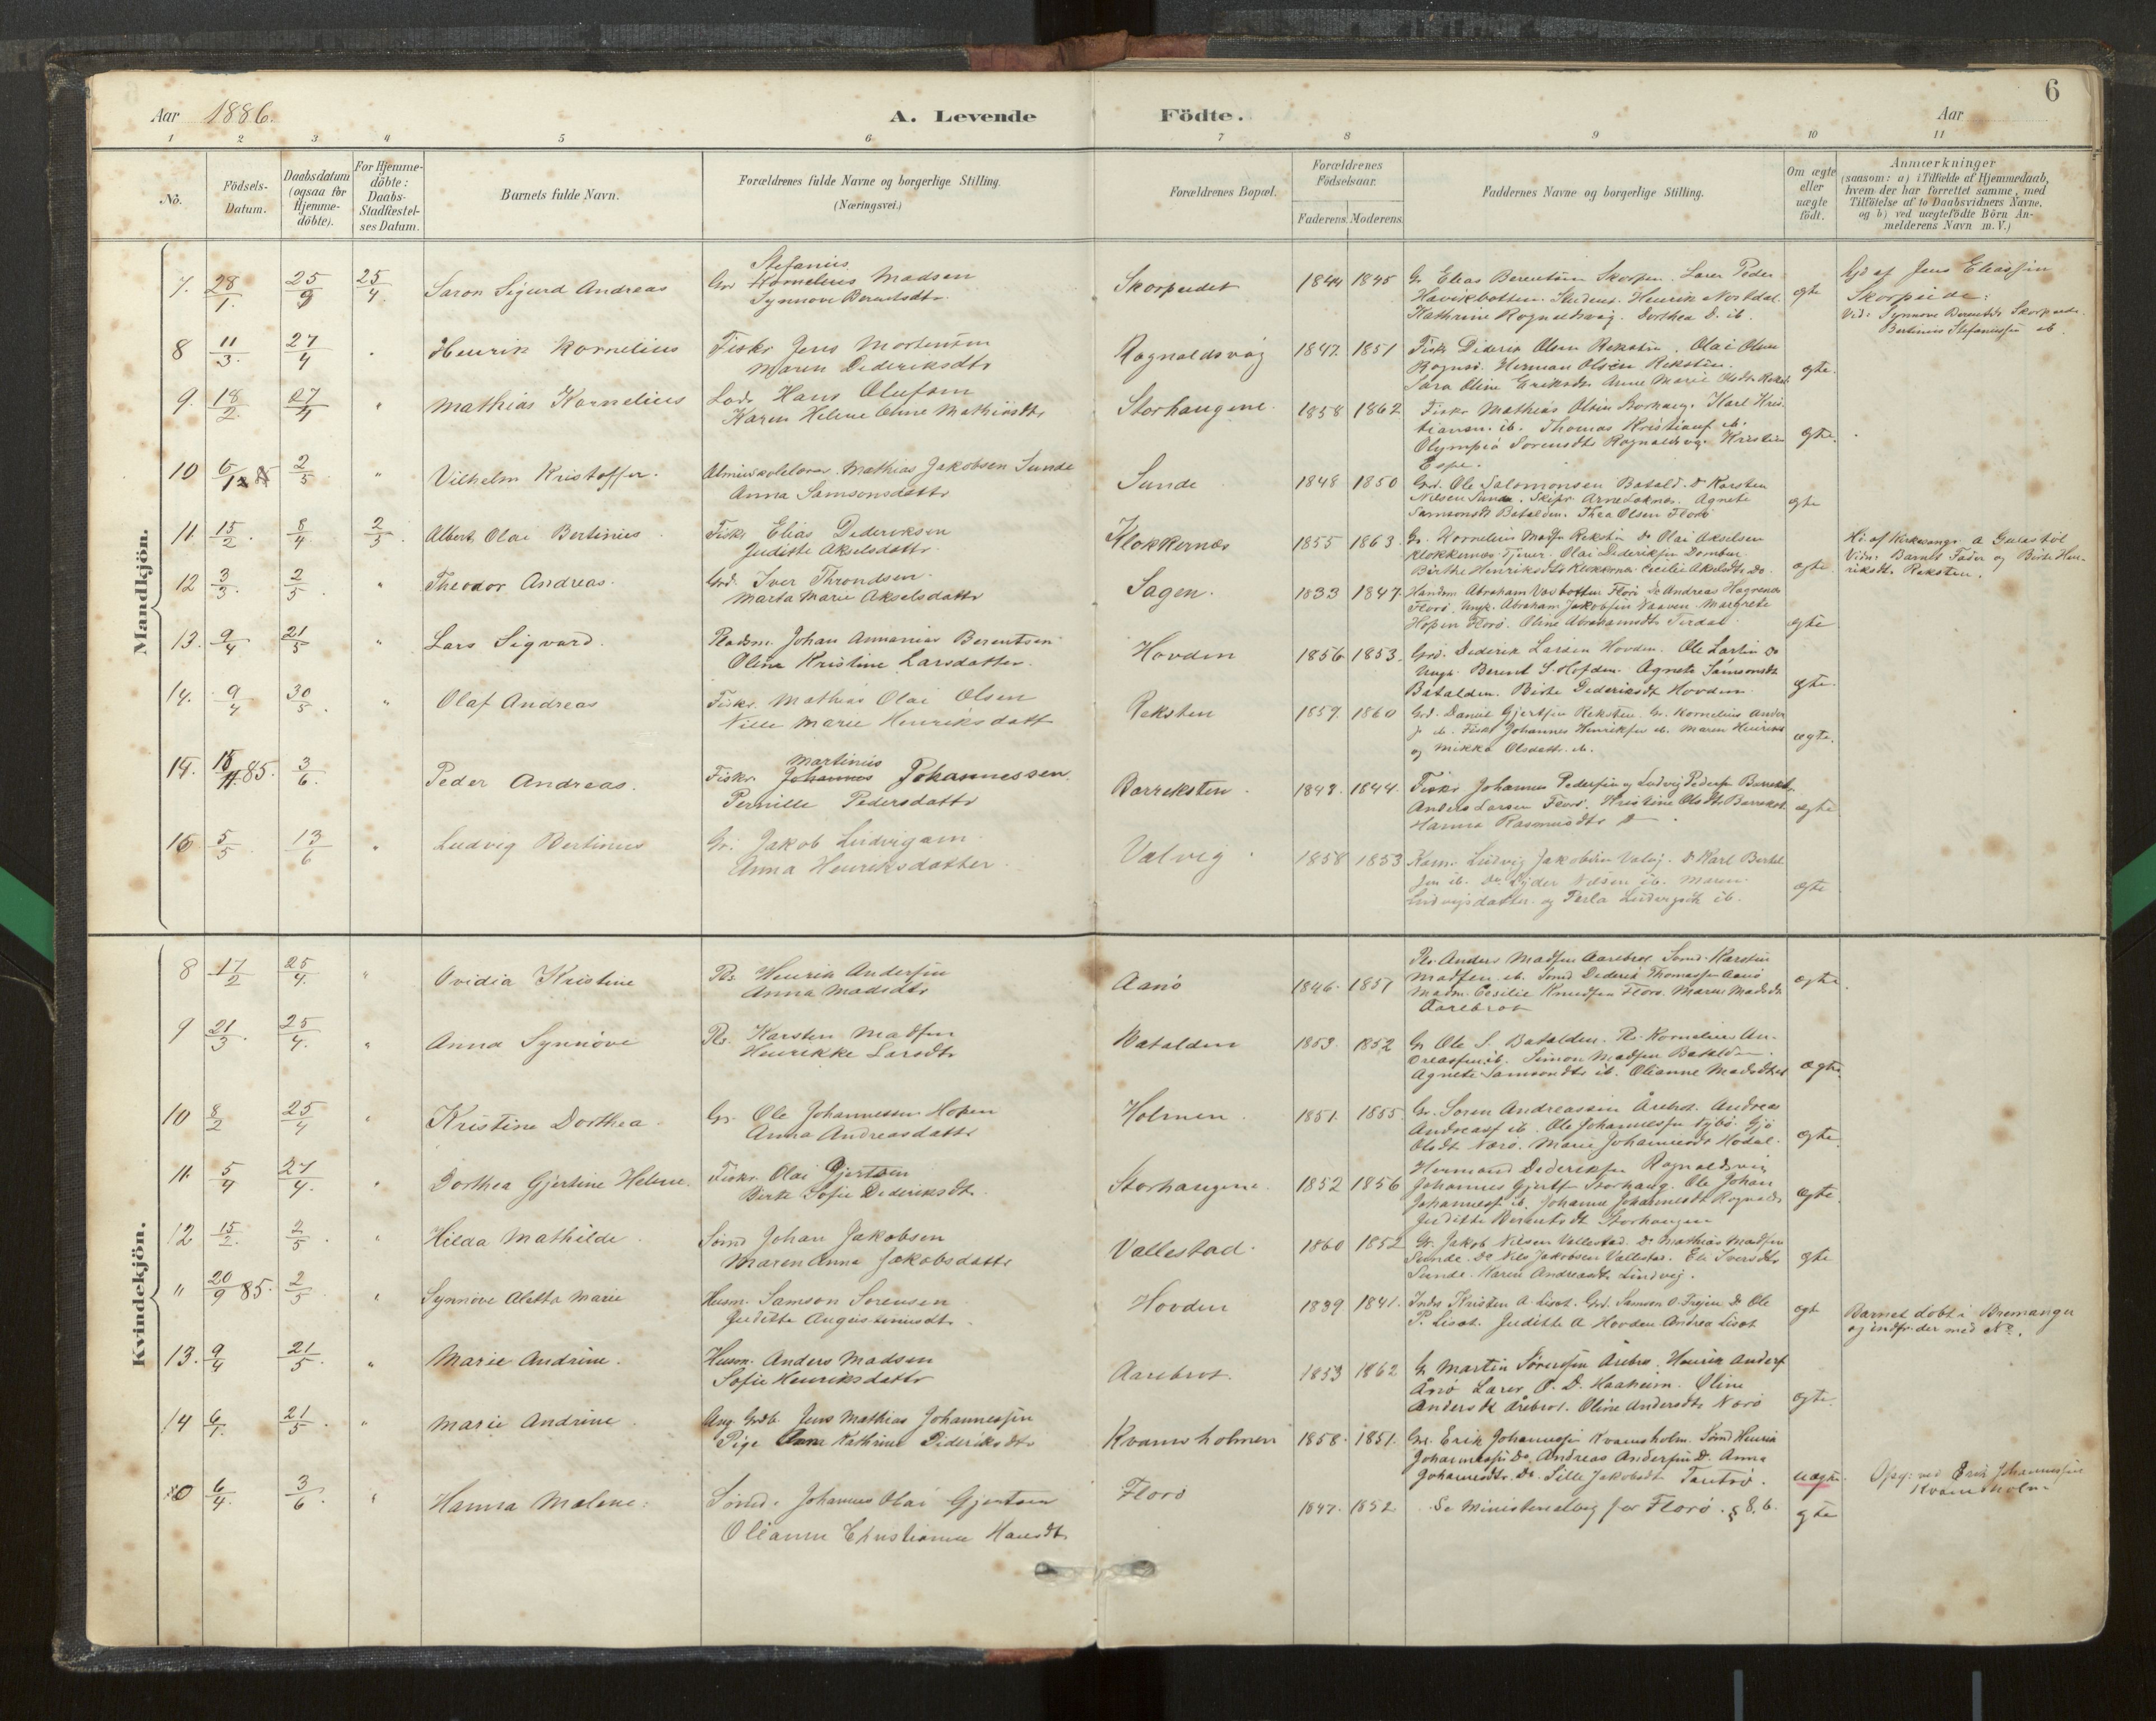 6
Aar 1886.
A. Levende Födte.
Aar
1 2 3 4 5 6 7 8 9 10 11
No.
Födsels-
Datum.
Daabsdatum
(ogsaa for
Hjemme-
döbte).
For Hjemme-
döbte:
Daabs-
Stadfæstel-
ses Datum.
Barnets fulde Navn.
Forældrenes fulde Navne og borgerlige Stilling.
(Næringsvei.)
Forældrenes Bopæl.
Forældrenes
Födselsaar.
Faderens. Moderens.
Faddernes Navne og borgerlige Stilling.
Om ægte
eller
uægte
födt.
Anmærkninger
(saasom: a) i Tilfælde af Hjemmedaab,
hvem der har forrettet samme, med
Tilföielse af to Daabsvidners Navne.
og b) ved uægtefödte Börn An-
melderens Navn m.V.)
Mandkjön.
7. 28/1. 25/9 25/4 Saron Sigurd Andreas
Stefanius
Gr Kornelius Madsen
Synnøve Berentsdtr.
Skorpeidet 1844 1845
Gr Elias Berentsen Skorpen. Lærer Peder
Havikbotten. Student Henrik Nordal.
Kathrine Rognaldsvåg. Dorthea D. ib.
egte
Hjd af Jens Eliassen
Skorpeide:
Vid: Synnøve Berentsdtr Skorpeide.
Bertinius Stefaniussen ib.
8 11/3. 27/4 " Henrik Kornelius
Fiskr Jens Mortensen
Maren Dideriksdtr
Rognaldsvåg 1847. 1851
Fiskr Diderik Olsen Reksten. Olai Olsen
Rognsv. Herman Olsen Reksten.
Sara Oline Eriksdtr Anne Marie Olsdtr Rekst
egte.
9. 18/2. 27/4 " Mathias Kornelius
Lods Hans Olufsen
Karen Helene Oline Mathiasdtr
Storhaugene 1858 1862
Fiskr Mathias Olsen Storhaug. Karl Kris-
tiansen. ib. Thomas Kristians ib.
Olympia Sorensdtr Rognaldsvg. Kristen
Espe.
egte.
10 6/12 2/5 " Vilhelm Kristoffer.
Almueskolelærer. Mathias Jakobsen Sunde
Anna Samsonsdattr
Sunde 1848 1850
Grd. Ole Salomonsen Batald. Do Karsten
Nilsen Sunde. Skipr Arne Loknes. Agnete
Samsonsdt Batalden. Thea Olsen Florö
egte
11. 15/2. 8/4. 2/5. Albert Olai Bertinius
Fiskr Elias Dideriksen
Juditte Akselsdattr.
Klokkernes 1855 1863.
Gr. Kornelius Madsn Reksten Do Olai Akselsen
Klokkernes. Tjener. Olai Dideriksen Dombur
Birthe Henriksdtr Klokkernes Cecilie Akselsdtr Do.
egte
Hi. af Kirkesangr A Gulastöl
Vidn: Barnets Fader og Birte Hen-
riksdt. Reksten.
12 3/3. 2/5. " Theodor Andreas.
Grd. Iver Throndsen.
Marta Marie Akselsdattr
Sagen. 1833 1847.
Handsm Abraham Vasbotten Florö Do Andreas Hagenæs
Florö. Ungk. Abraham Jakobsen Naaven. Margrete
Hopen Florö. Oline Abrahamsdt Terdal.
egte
13. 9/4 21/5 " Lars Sigvard.
Pladsm. Johan Annanias Berentsen
Oline Kristine Larsdatter.
Hovden 1856 1853.
Grd. Diderik Larsen Hovden. Ole Larsen Do
Ungk. Berent S. Hofden. Agnete Samsonsdt
Batalden. Birte Dideriksdt Hovden.
egte.
14. 9/4 30/5. " Olaf Andreas
Fiskr. Mathias Olai Olsen
Nille Marie Henriksdatt
Reksten 1859. 1860
Grd. Daniel Gjertsen Reksten. Gr. Kornelius Anders
f ib. Fiskr Johannes Henriksen ib. Maren Henriks
og Mikka Olsdatt. ib.
ægte.
14. 18/11.85. 3/6. Peder Andreas.
Martinus
Fiskr. Johannes Johannessen
Pernille Pedersdattr
Barreksten. 1848. 1844.
Fiskr Johannes Pedersen og Ludvig Pedersen Barrekst.
Anders Larsen Florö. Kristine Olsdtr Barrekst
Hanna Rasmusdtr Do.
ægte
16 5/5. 13/6 " Ludvig Bertinus
Gr. Jakob Ludvigsen
Anna Henriksdatter.
Valvig. 1858 1853
Kam. Ludvig Jakobsen Valvg. Do Karl Bertel
sen ib. Do Peder Nilsen ib. Maren
Ludvigsdatter. og Perla Ludvigsdt ib.
ægte
Kvindekjön.
8 17/2 25/4. " Ovidia Kristine
Pls. Henrik Andersen
Anna Madsdtr
Aanö 1846. 1851
Pls. Anders Madsen Aarebrot Sømd. Karsten
Madsen. ib. Sømd Diderik Thomassen Aanö
Madm. Cecilie Knudsen Florö. Maren Madsdt
Aarebrot
ægte.
9 21/3. 25/4. " Anna Synnöve
Pls. Karsten Madsen
Henrikke Larsdtr
Batalden 1853. 1852
Gr Ole S. Batalden. Pls. Kornelius An-
dreassen ib. Simon Madsen Batalden.
Agnete Samsonsdtr ib. Olianne Madsdtr
ægte.
10 8/2 25/4 " Kristine Dorthea.
Gr. Ole Johannessen Hopen
Anna Andreasdattr
Holmen. 1851. 1855
Gr. Soren Andreassen Årebrot. Andreas
Andreasf ib. Ole Johannessen Nybö. Gjö
Olsdt Nærö. Marie Johannesdt Hodal.
ægte.
11. 5/4 27/4. " Dorthea Gjertine Helene.
Fiskr. Olai Gjertsen
Birte Sofie Dideriksdt.
Storhaugene 1852 1856
Hermand Dideriksen Rognaldsvig
Johannes Gjertf Storhaug. Ole Johan
Johannesf ib. Johanne Johannesdt Rognalds
Juditte Berentsdt Storhaugen
ægte.
12 15/2. 2/5. " Hilda Mathilde.
Sömd Johan Jakobsen
Maren Anna Jakobsdattr
Vallestad. 1860 1852
Gr. Jakob Nilsen Vallestad. Do Mathias Madsen
Sunde. Do Nils Jakobsen Vallestad. Eli Iversdtr
Sunde. Karen Andreasdt Lindvej.
egte
" 20/9 85. 2/5. " Synnöve Aletta Marie
Husm. Samson Sorensen
Juditte Augustinusdt.
Hovden 1839 1841.
Inds Kristen A. Lisæt. Grd. Samson O. Frøjen Do Ole
P. Lisæt. Juditte A Hovden. Andrea Lisæt
egte
Barnet döbt i Bremanger
og indfr. der med No.
13. 9/4 21/5. " Marie Andrine.
Husm. Anders Madsen
Sofie Henriksdattr
Aarebrot. 1853 1862
Gr Martin Sörensen Årebro. Henrik Andersf
Ånö Lærer O. D. Haaheim. Oline
Andersdt Årebrot. Oline Andersdtr Nærö
ægte.
14 6/4. 21/5. " Marie Andrine.
Ung. Grdb. Jens Mathias Johannessen
Pige Anna Kathrine Dideriksdtr
Kvamsholmen 1858. 1851.
Gr. Erik Johannessen Kvamsholm. Sömd Henrik
Johannessen Do. Andreas Andersen Do. Anna
Johannesdtr. Do. Sille Jakobsdt Tautrö.
uægte.
Opg: ved Erik Johannessen
Kvamsholm
20 6/4. 3/6. " Hanna Malene.
Sömd. Johannes Olai Gjertsen
Olianne Christianne Hansdtr
Florö 1847. 1852
Se Ministerialbog for Florö. § 8. b.
egte